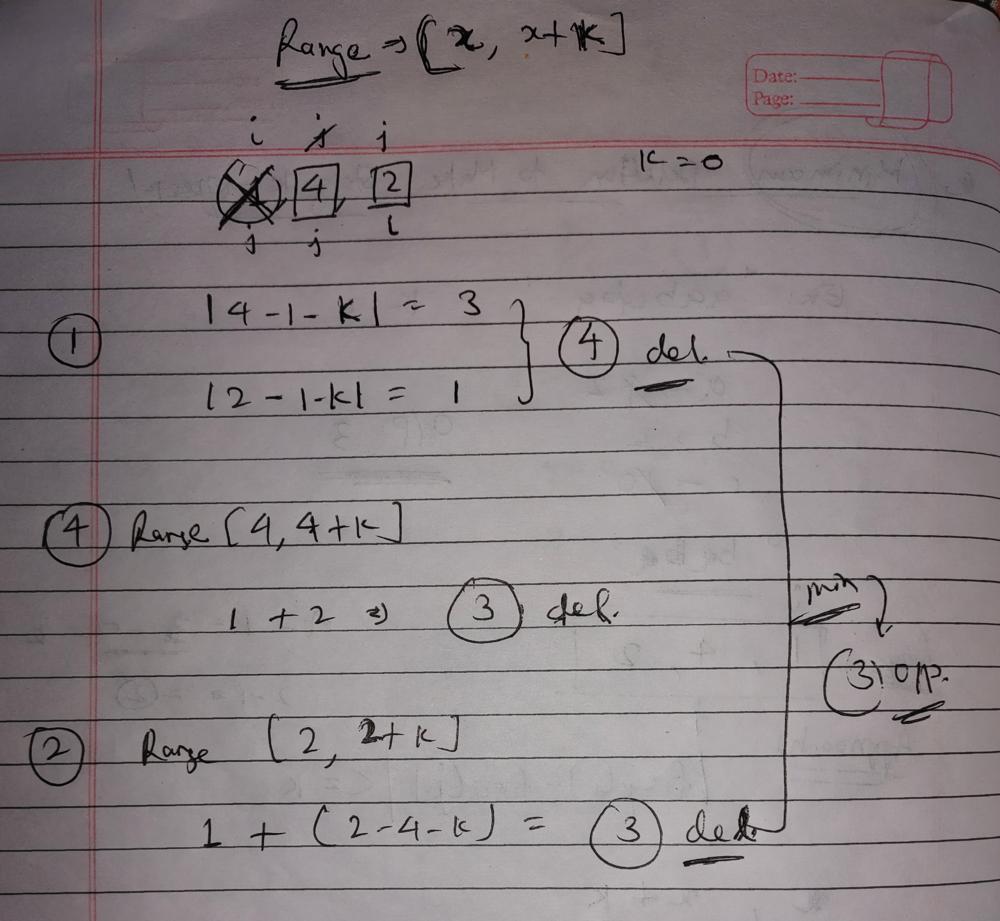 Range ⇒ [x, x+k]
Date:
Page:
i j j
k = 0
1 4 2
j j i
|4-1-k| = 3
① ④ del.
|2-1-k| = 1
④ Range [4, 4+k]
1 + 2 ⇒ ③ del.
min
③ opp.
② Range [2, 2+k]
1 + (2-4-k) = ③ del.